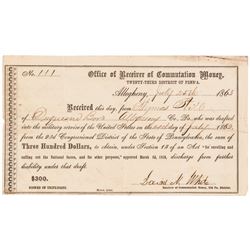 No. 111
Office of Receiver of Commutation Money,
TWENTY-THIRD DISTRICT OF PENN'A.
Allegheny, July 25th 1863
Received this day, from
of Allegheny Co. Pa. who was drafted
into the military service of the United States on the day of July 1863,
from the 23d Congressional District of the State of Pennsylvania, the sum of
Three Hundred Dollars, to obtain, under Section 13 of an Act "for enrolling and
calling out the National Forces, and for other purposes," approved March 3d, 1863, discharge from further
liability under that draft.
$300.
SIGNED IN TRIPLICATE.
Receiver of Commutation Money, 23d Pa. District.